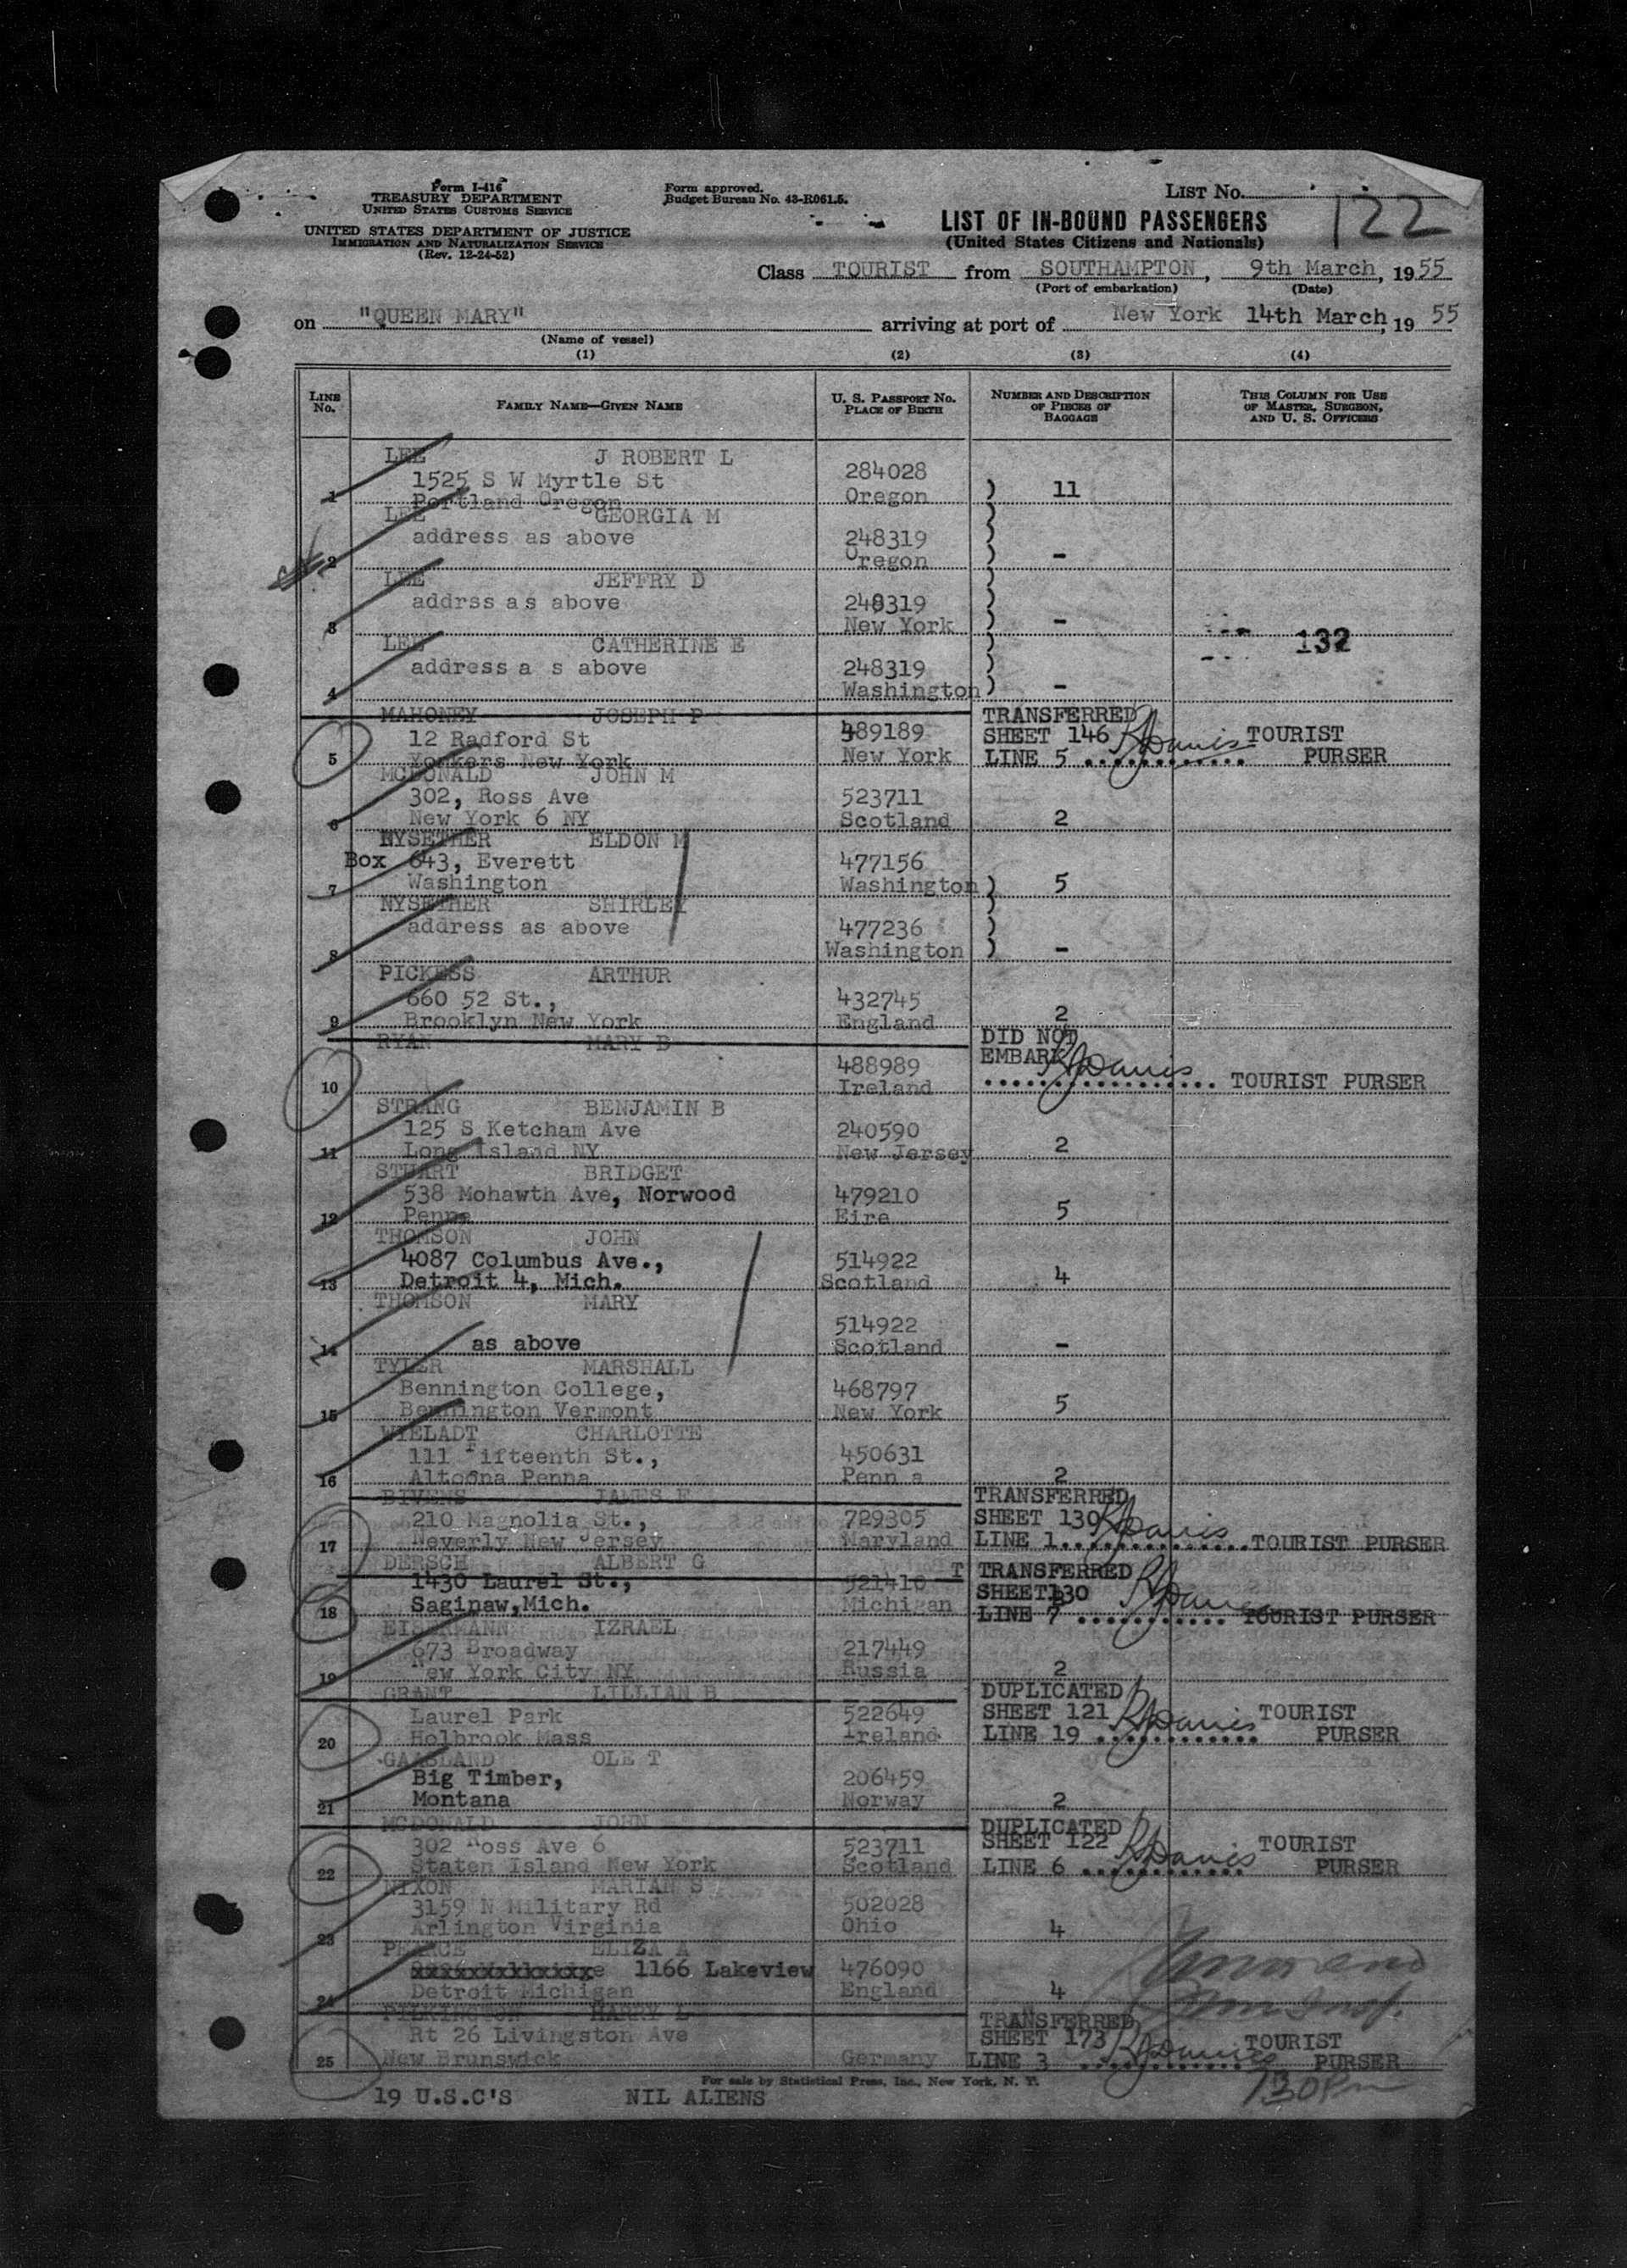 Form I-416
TREASURY DEPARTMENT
UNITED STATES CUSTOMS SERVICE
UNITED STATES DEPARTMENT OF JUSTICE
IMMIGRATION AND NATURALIZATION SERVICE
(Rev. 12-24-52)
Form approved.
Budget Bureau No. 43-R061.5.
LIST No.
122
LIST OF IN-BOUND PASSENGERS
(United States Citizens and Nationals)
Class TOURIST from SOUTHAMPTON, 9th March, 1955
(Port of embarkation) (Date)
on "QUEEN MARY" arriving at port of New York 14th March, 1955
(Name of vessel)
(1) (2) (3) (4)
LINE No. FAMILY NAME—GIVEN NAME U. S. PASSPORT No. PLACE OF BIRTH NUMBER AND DESCRIPTION OF PIECES OF BAGGAGE THIS COLUMN FOR USE OF MASTER, SURGEON, AND U. S. OFFICERS
LEE J ROBERT L
1525 S W Myrtle St 284028
1 Portland Oregon Oregon ) 11
LEE GEORGIA M
address as above 248319
2 Oregon ) -
LEE JEFFRY D
addrss as above 248319
3 New York ) -
132
LEE CATHERINE E
address a s above 248319
4 Washington ) -
MAHONEY JOSEPH P TRANSFERRED
12 Radford St 489189 SHEET 146 RJDavis TOURIST
5 Yonkers New York New York LINE 5 ............ PURSER
MCDONALD JOHN M
302, Ross Ave 523711
6 New York 6 NY Scotland 2
NYSETHER ELDON M
Box 643, Everett 477156
7 Washington Washington ) 5
NYSETHER SHIRLEY
address as above 477236
8 Washington ) -
PICKESS ARTHUR
660 52 St., 432745
9 Brooklyn New York England 2
RYAN MARY B DID NOT
488989 EMBARK RJDavis
10 Ireland ................. TOURIST PURSER
STRANG BENJAMIN B
125 S Ketcham Ave 240590
11 Long Island NY New Jersey 2
STUART BRIDGET
538 Mohawth Ave, Norwood 479210
12 Penna Eire 5
THOMSON JOHN
4087 Columbus Ave., 514922
13 Detroit 4, Mich. Scotland 4
THOMSON MARY
514922
14 as above Scotland -
TYLER MARSHALL
Bennington College, 468797
15 Bennington Vermont New York 5
WIELADT CHARLOTTE
111 Fifteenth St., 450631
16 Altoona Penna Penn a 2
BIVENS JAMES F TRANSFERRED
210 Magnolia St., 729305 SHEET 130 RJDavis
17 Beverly New Jersey Maryland LINE 1 ............... TOURIST PURSER
DERSCH ALBERT G T TRANSFERRED
1430 Laurel St., 521410 SHEET 130 RJDavis
18 Saginaw, Mich. Michigan LINE 7 ............ TOURIST PURSER
BISERMANN IZRAEL
673 Broadway 217449
19 New York City NY Russia 2
GRANT LILLIAN B DUPLICATED
Laurel Park 522649 SHEET 121 RJDavis TOURIST
20 Holbrook Mass Ireland LINE 19 ............ PURSER
GAASLAND OLE T
Big Timber, 206459
21 Montana Norway 2
MCDONALD JOHN DUPLICATED
302 Ross Ave 6 523711 SHEET 122 RJDavis TOURIST
22 Staten Island New York Scotland LINE 6 ............ PURSER
NIXON MARIAN S
3159 N Military Rd 502028
23 Arlington Virginia Ohio 4
PEARCE ELIZA A
1166 Lakeview 476090
24 Detroit Michigan England 4
PILKINGTON HARRY L TRANSFERRED
Rt 26 Livingston Ave SHEET 173 RJDavis TOURIST
25 New Brunswick Germany LINE 3 ............ PURSER
For sale by Statistical Press, Inc., New York, N. Y.
730 Pm
19 U.S.C'S NIL ALIENS